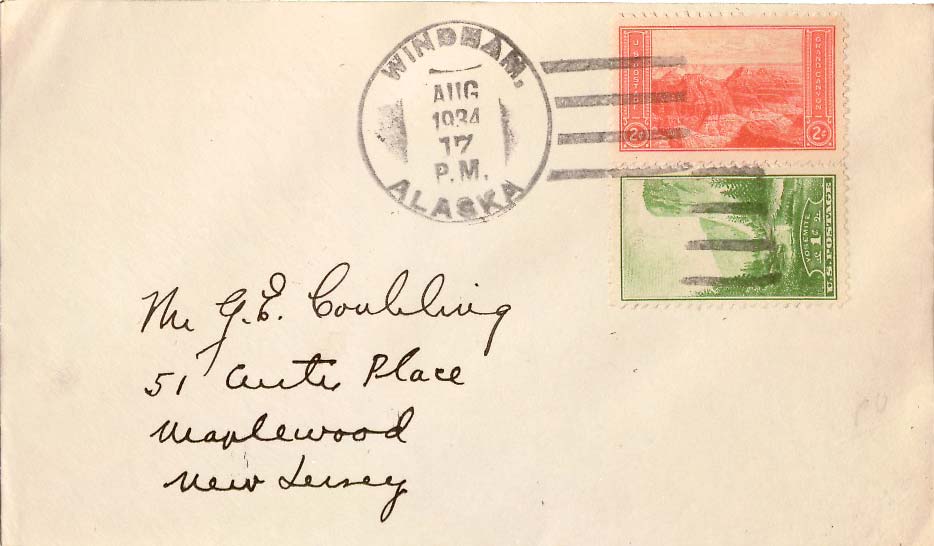 WINDHAM,
AUG
1934
17
P.M.
ALASKA
U.S. POSTAGE
GRAND CANYON
2¢ 2¢
YOSEMITE
1¢
U.S. POSTAGE
Mr G.E. Conkling
51 Center Place
Maplewood
New Jersey